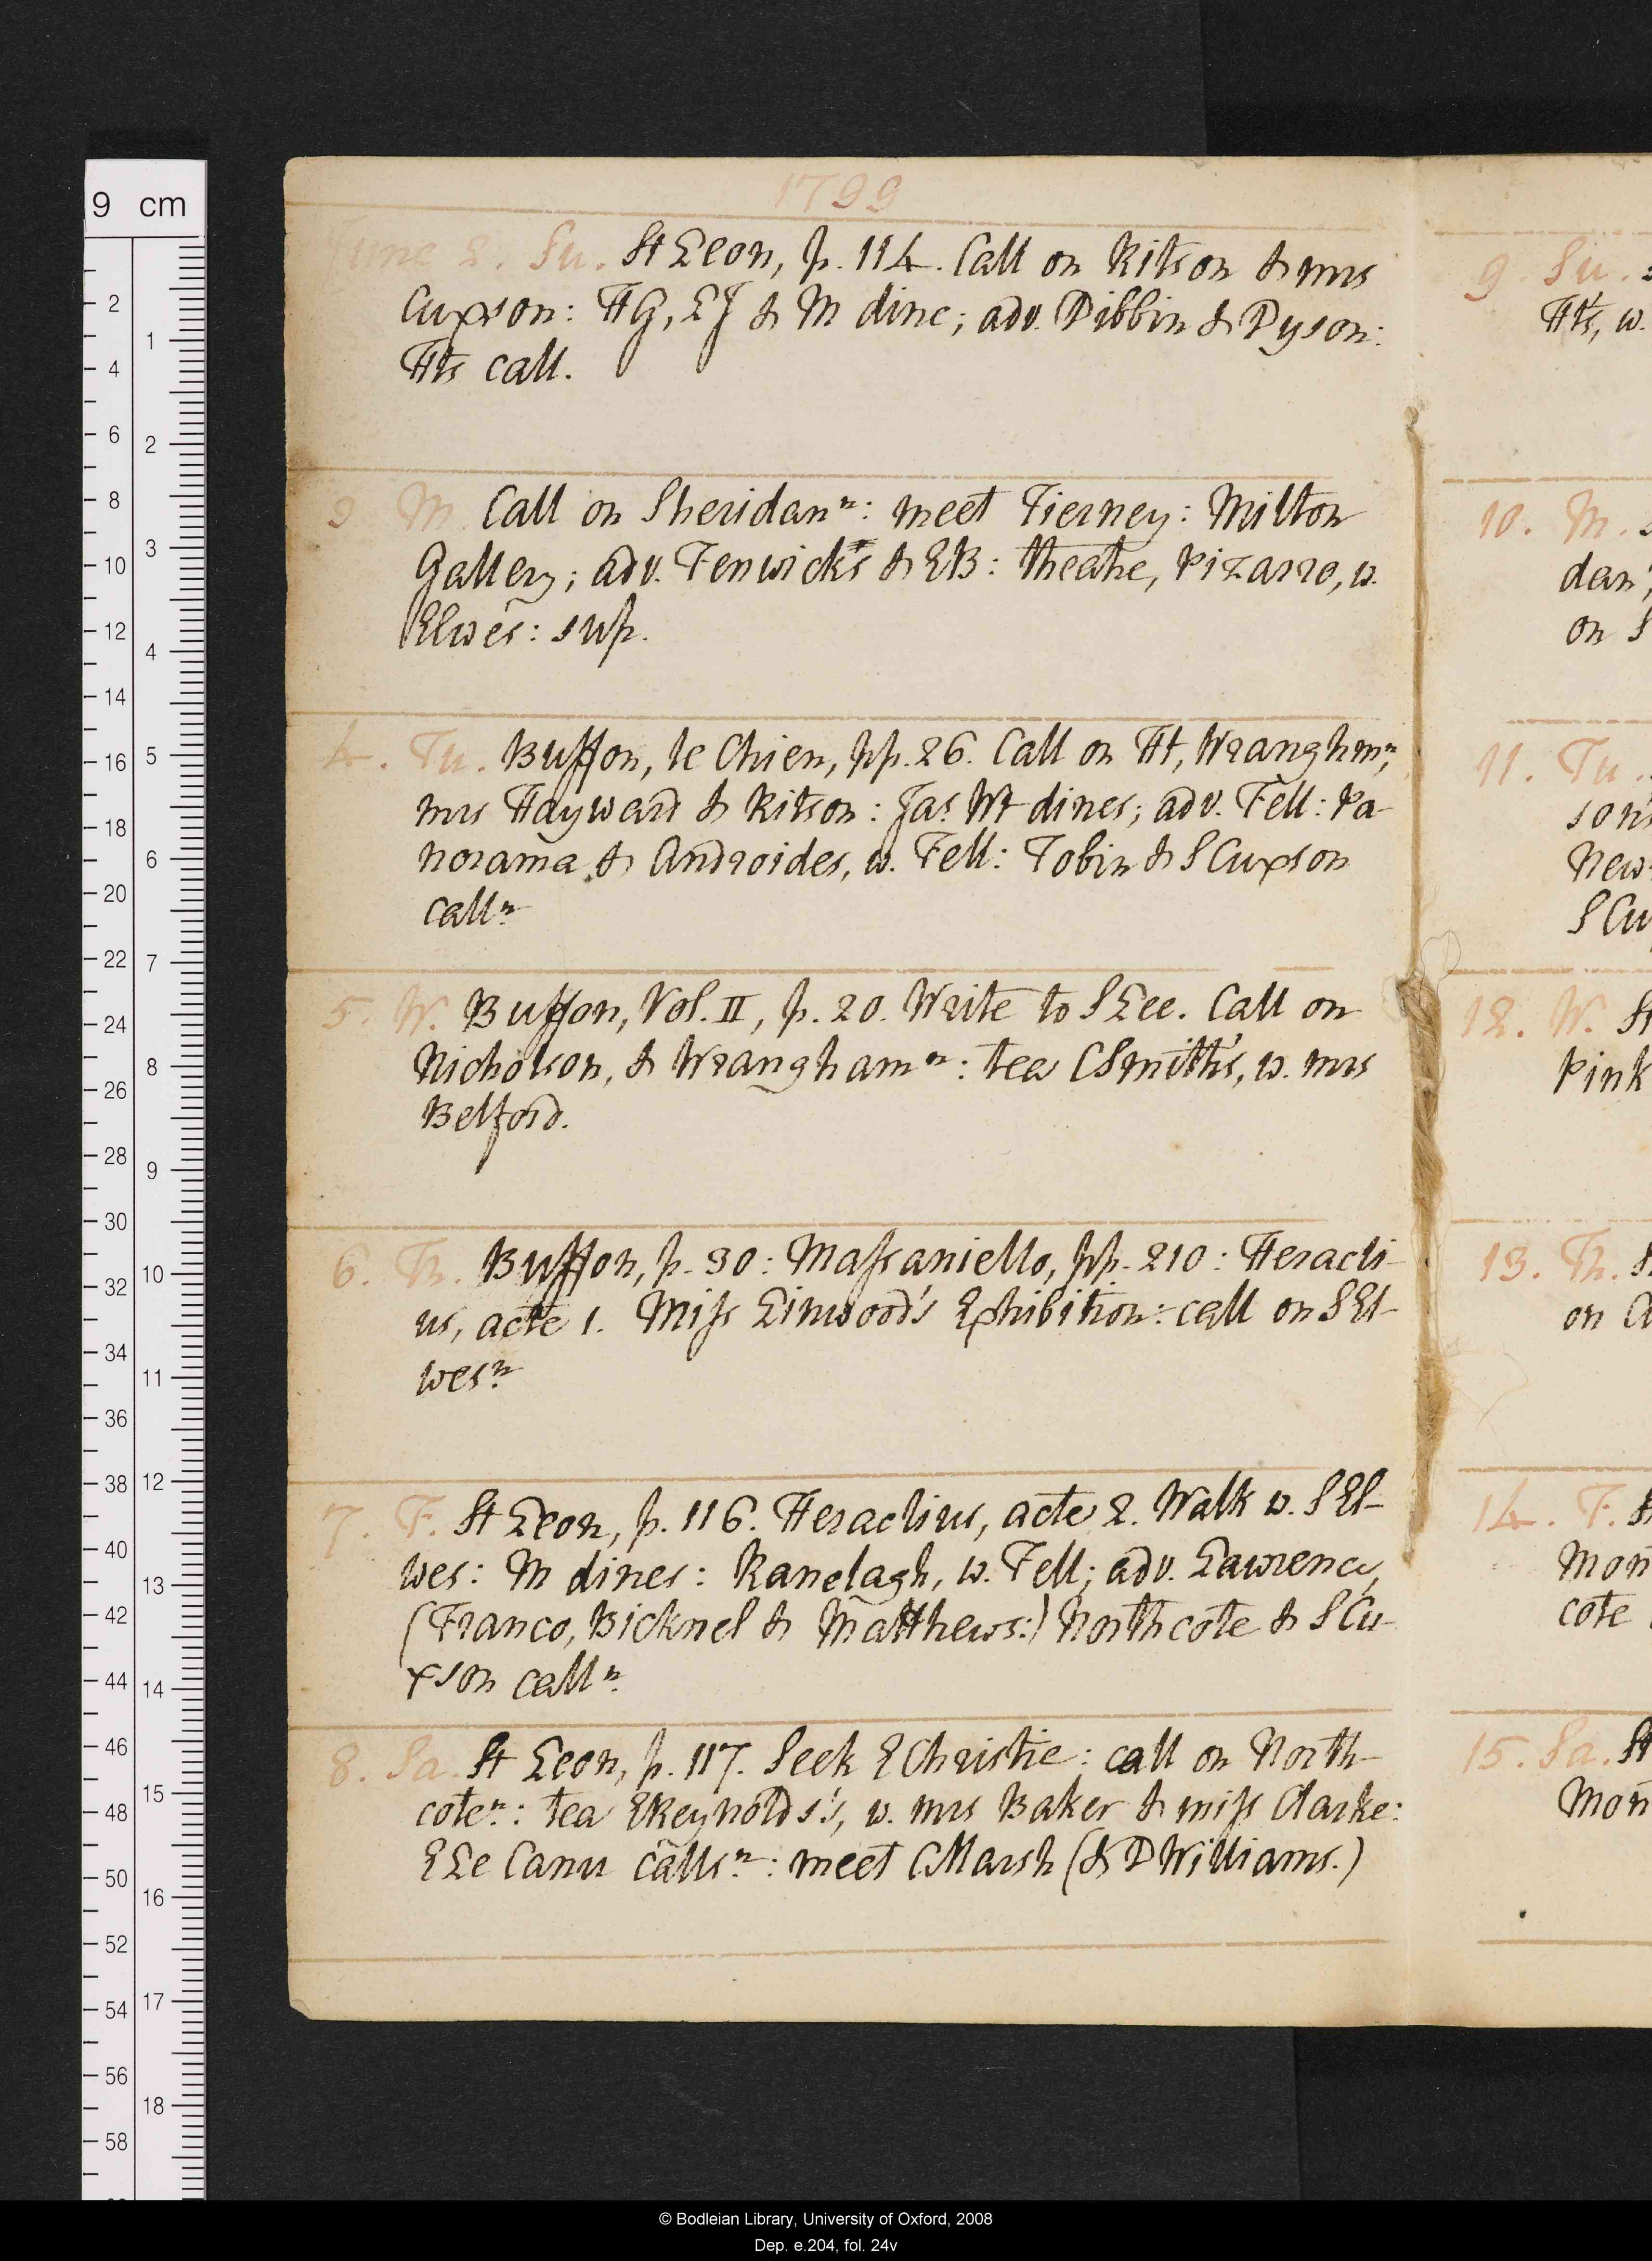 1799
June 2. Su. St Leon, p. 114. Call on Ritson & mrs
Cuxson: HG, LJ & M dine; adv. Dibbin & Dyson:
Hts call.
3 M. Call on Sheridan n: meet Tierney: Milton
Gallery; adv. Fenwicks & EB: theatre, Pizarro, w.
Elwes: sup.
4. Tu. Buffon, le Chien, pp. 26. Call on Ht, Wranghm n,
mrs Hayward & Ritson: Jas Wt dines; adv. Fell: Pa-
norama & Androides, w. Fell: Tobin & S Cuxson
call n.
5. W. Buffon, Vol. II, p. 20. Write to S Lee. Call on
Nicholson, & Wrangham n: tea C Smith's, w. mrs
Belford.
6. Th. Buffon, p. 30: Massaniello, pp. 210: Heracli-
us, acte 1. Miss Linwood's Exhibition: call on S El-
wes n.
7. F. St Leon, p. 116. Heraclius, acte 2. Walk w. S El-
wes: M dines: Ranelagh, w. Fell; adv. Lawrence,
(Franco, Bicknel & Matthews:) Northcote & S Cu-
xson call n.
8. Sa. St Leon, p. 117. Seek E Christie: call on North-
cote n: tea E Reynolds's, w. mrs Baker & miss Clarke:
E Le Canu calls n: meet C Marsh (& D Williams.)
9. Su.
Hts, w.
10. M.
dan
on S
11. Tu.
sons
New-
S Cu
12. W. St
Pink
13. Th.
on
14. F.
Mon
cote
15. Sa. St
Mon
9 cm
2
4
6
8
10
12
14
16
18
20
22
24
26
28
30
32
34
36
38
40
42
44
46
48
50
52
54
56
58
1
2
3
4
5
6
7
8
9
10
11
12
13
14
15
16
17
18
© Bodleian Library, University of Oxford, 2008
Dep. e.204, fol. 24v